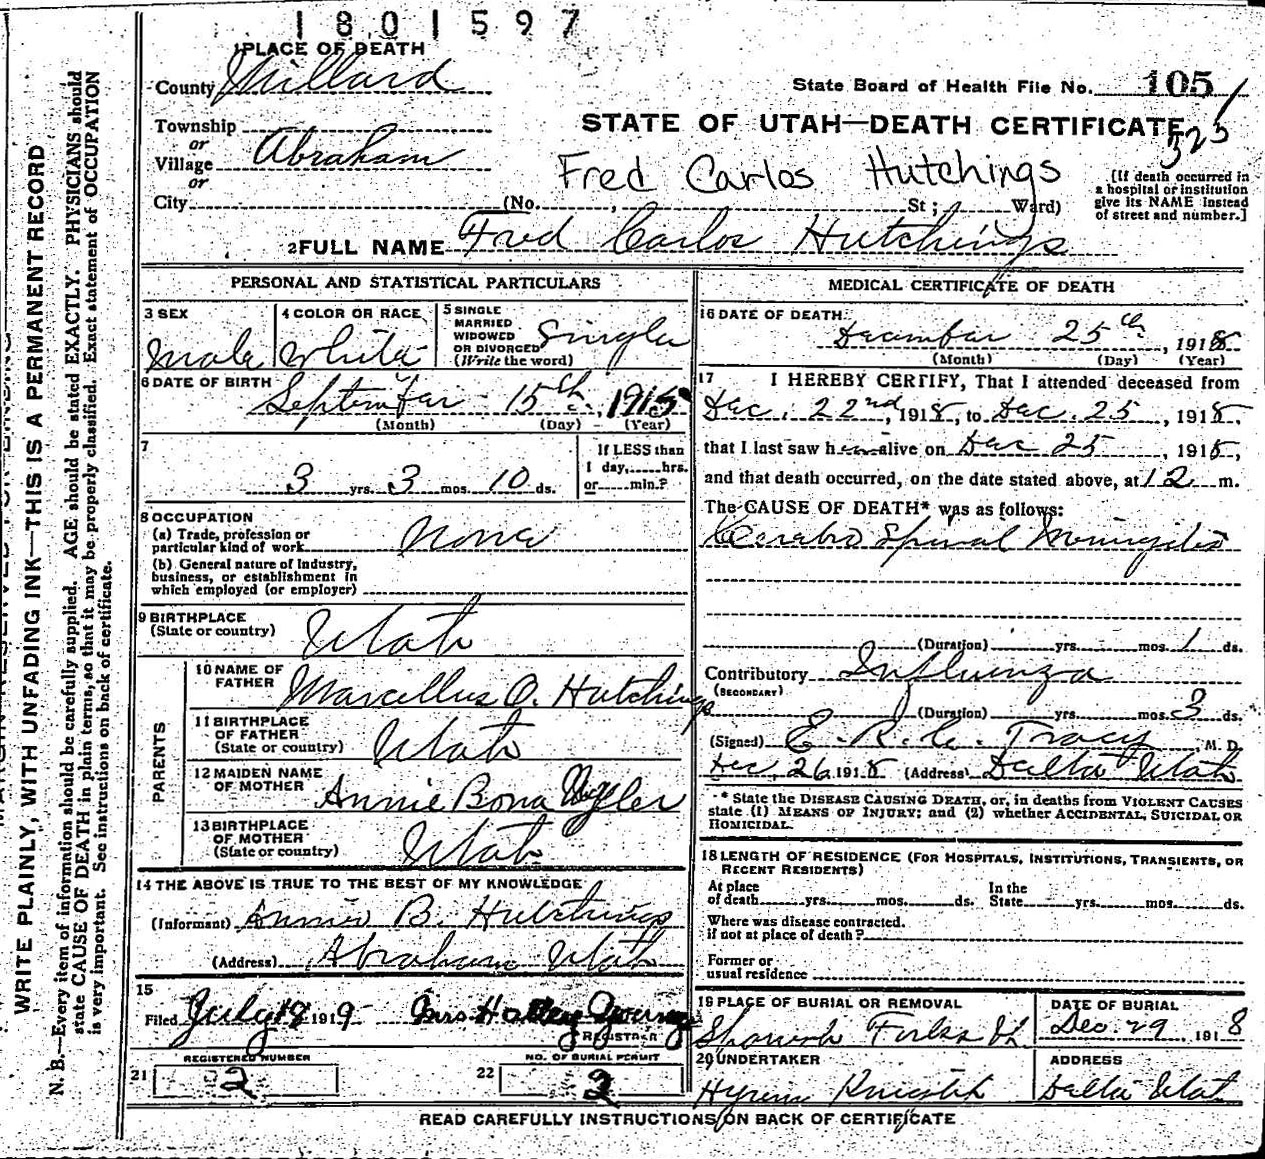 1801597
1 PLACE OF DEATH
County Millard
State Board of Health File No. 105
Township
or
Village Abraham
or
City (No. , St ; Ward)
STATE OF UTAH—DEATH CERTIFICATE
323
Fred Carlos Hutchings
[If death occurred in
a hospital or institution
give its NAME instead
of street and number.]
2 FULL NAME Fred Carlos Hutchings
PERSONAL AND STATISTICAL PARTICULARS
3 SEX
Male
4 COLOR OR RACE
White
5 SINGLE
MARRIED
WIDOWED
OR DIVORCED
(Write the word)
Single
6 DATE OF BIRTH
September 15th, 1915
(Month) (Day) (Year)
7
3 yrs. 3 mos. 10 ds.
If LESS than
1 day, hrs.
or min.?
8 OCCUPATION
(a) Trade, profession or
particular kind of work None
(b) General nature of Industry,
business, or establishment in
which employed (or employer)
9 BIRTHPLACE
(State or country) Utah
PARENTS
10 NAME OF
FATHER Marcellus O. Hutchings
11 BIRTHPLACE
OF FATHER
(State or country) Utah
12 MAIDEN NAME
OF MOTHER Annie Bona
13 BIRTHPLACE
OF MOTHER
(State or country) Utah
14 THE ABOVE IS TRUE TO THE BEST OF MY KNOWLEDGE
(Informant) Annie B. Hutchings
(Address) Abraham Utah
15
Filed July 1919 Mrs
REGISTRAR
REGISTERED NUMBER
21 2
NO. OF BURIAL PERMIT
22 2
MEDICAL CERTIFICATE OF DEATH
16 DATE OF DEATH
December 25th, 1918
(Month) (Day) (Year)
17 I HEREBY CERTIFY, That I attended deceased from
Dec. 22nd, 1918, to Dec. 25, 1918,
that I last saw h alive on Dec 25, 1918,
and that death occurred, on the date stated above, at 12 m.
The CAUSE OF DEATH* was as follows:
Cerebro Spinal Meningitis
(Duration) yrs. mos. 1 ds.
Contributory Influenza
(SECONDARY)
(Duration) yrs. mos. 3 ds.
(Signed) E. R. C. Tracy, M. D.
Dec. 26 1918 (Address) Delta Utah
* State the DISEASE CAUSING DEATH, or, in deaths from VIOLENT CAUSES
state (1) MEANS OF INJURY; and (2) whether ACCIDENTAL, SUICIDAL OR
HOMICIDAL.
18 LENGTH OF RESIDENCE (FOR HOSPITALS, INSTITUTIONS, TRANSIENTS, OR
RECENT RESIDENTS)
At place
of death yrs. mos. ds.
In the
State yrs. mos. ds.
Where was disease contracted.
if not at place of death?
Former or
usual residence
19 PLACE OF BURIAL OR REMOVAL
DATE OF BURIAL
Dec. 29 1918
20 UNDERTAKER
Hyrum
ADDRESS
Delta Utah
READ CAREFULLY INSTRUCTIONS ON BACK OF CERTIFICATE
WRITE PLAINLY, WITH UNFADING INK—THIS IS A PERMANENT RECORD
N. B.—Every item of information should be carefully supplied. AGE should be stated EXACTLY. PHYSICIANS should
state CAUSE OF DEATH in plain terms, so that it may be properly classified. Exact statement of OCCUPATION
is very important. See instructions on back of certificate.